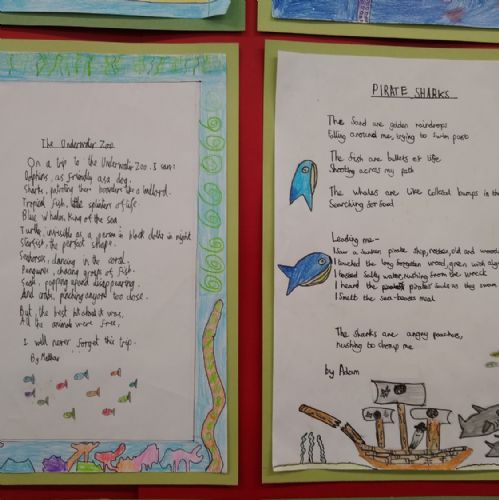 The Underwater Zoo
On a trip to the Underwater Zoo, I saw:
Dolphins, as friendly as a dog.
Sharks, patroling their boarders like a
Tropical fish, little splinters of life.
Blue whales, King of the sea.
Turtle, invisible as a person in black dollis in night
Starfish, the perfect shape.
Seahorses, dancing in the coral.
Penguins, chasing groups of fish.
Seals, popping up and disappearing.
And crabs, pinching anyone too close.
But, the best bit about it was,
All the animals were free.
I well never forget this trip.
By Matthew
PIRATE SHARKS
The Sand are golden raindrops
falling around me, trying to swim past
The fish are bullets of life
Shooting across my path
The whales are like collosal bumps in the
Searching for food
Leading me-
I saw a sunken pirate ship, rotten, old and wood
I touched the long forgotten wood, green with alg
I tasted salty water, rushing from the wreck
I heard the pirates souls as they swam
I smelt the sea-bass's meal
The sharks are angry poachers,
rushing to chomp me
by Adam